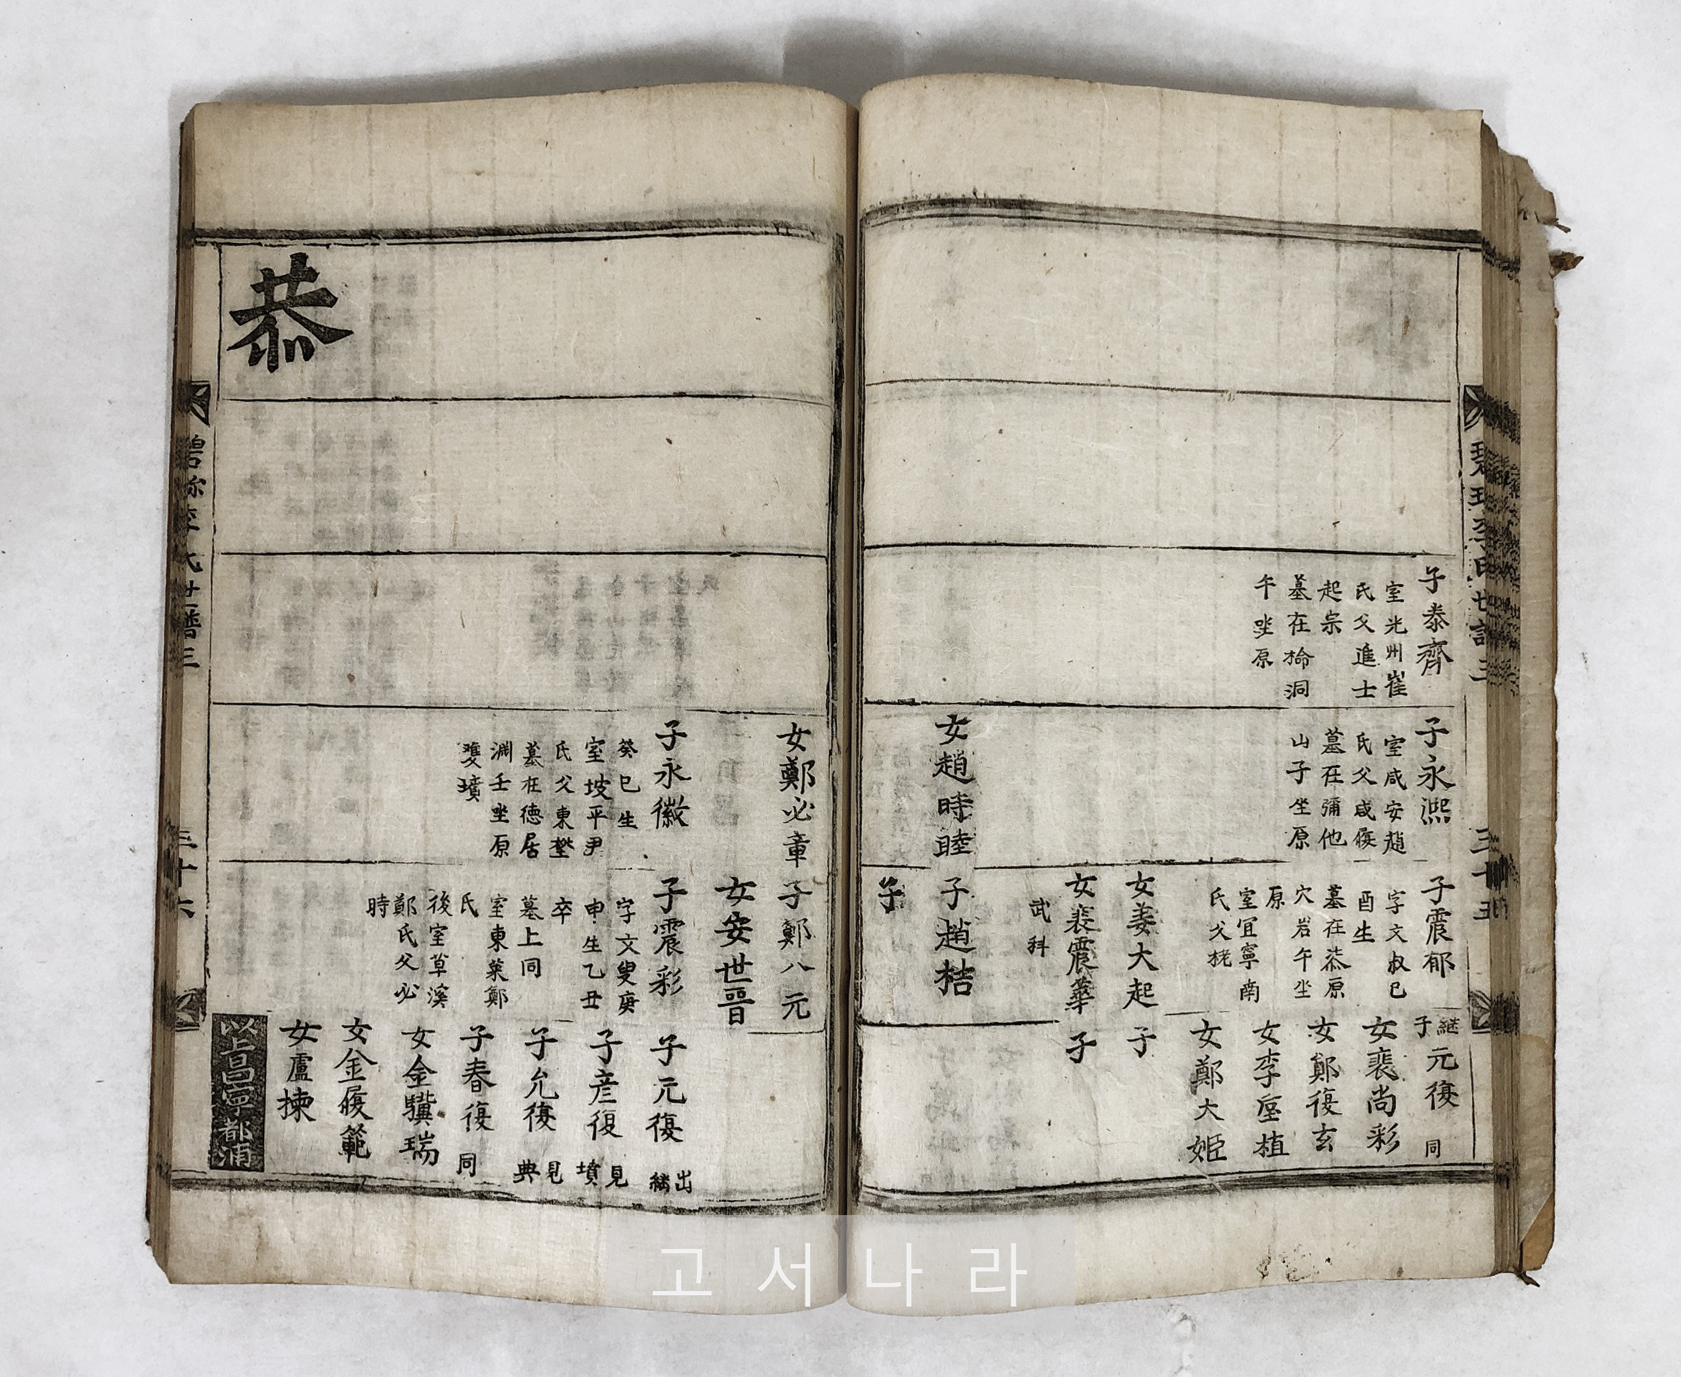 碧珍李氏世譜三
三十五
子泰齊
室光州崔
氏父進士
起宗
墓在
洞
午坐原
子永熙
室咸安趙
氏父咸
墓在彌他
山子坐原
女趙時睦
子震郁
字文叔己
酉生
墓在恭原
穴岩午坐
原
室宜寧南
氏父
女姜大起
女裵震華
武科
子趙桔
子
繼子元復 同
女裵尚彩
女鄭復玄
女李垕植
女鄭大姬
子
子
女鄭必章
子永徽
癸巳生
室坡平尹
氏父東
墓在德居
淵壬坐原
雙墳
子鄭八元
女安世晋
子震彩
字文叟庚
申生乙丑
卒
墓上同
室東萊鄭
氏
後室草溪
鄭氏父必
時
子元復 出繼
子彦復 見墳
子允復 見典
子春復 同
女金驥瑞
女金履範
女盧揀
恭
以上昌寧都浦
碧珍李氏世譜三
三十六
고서나라